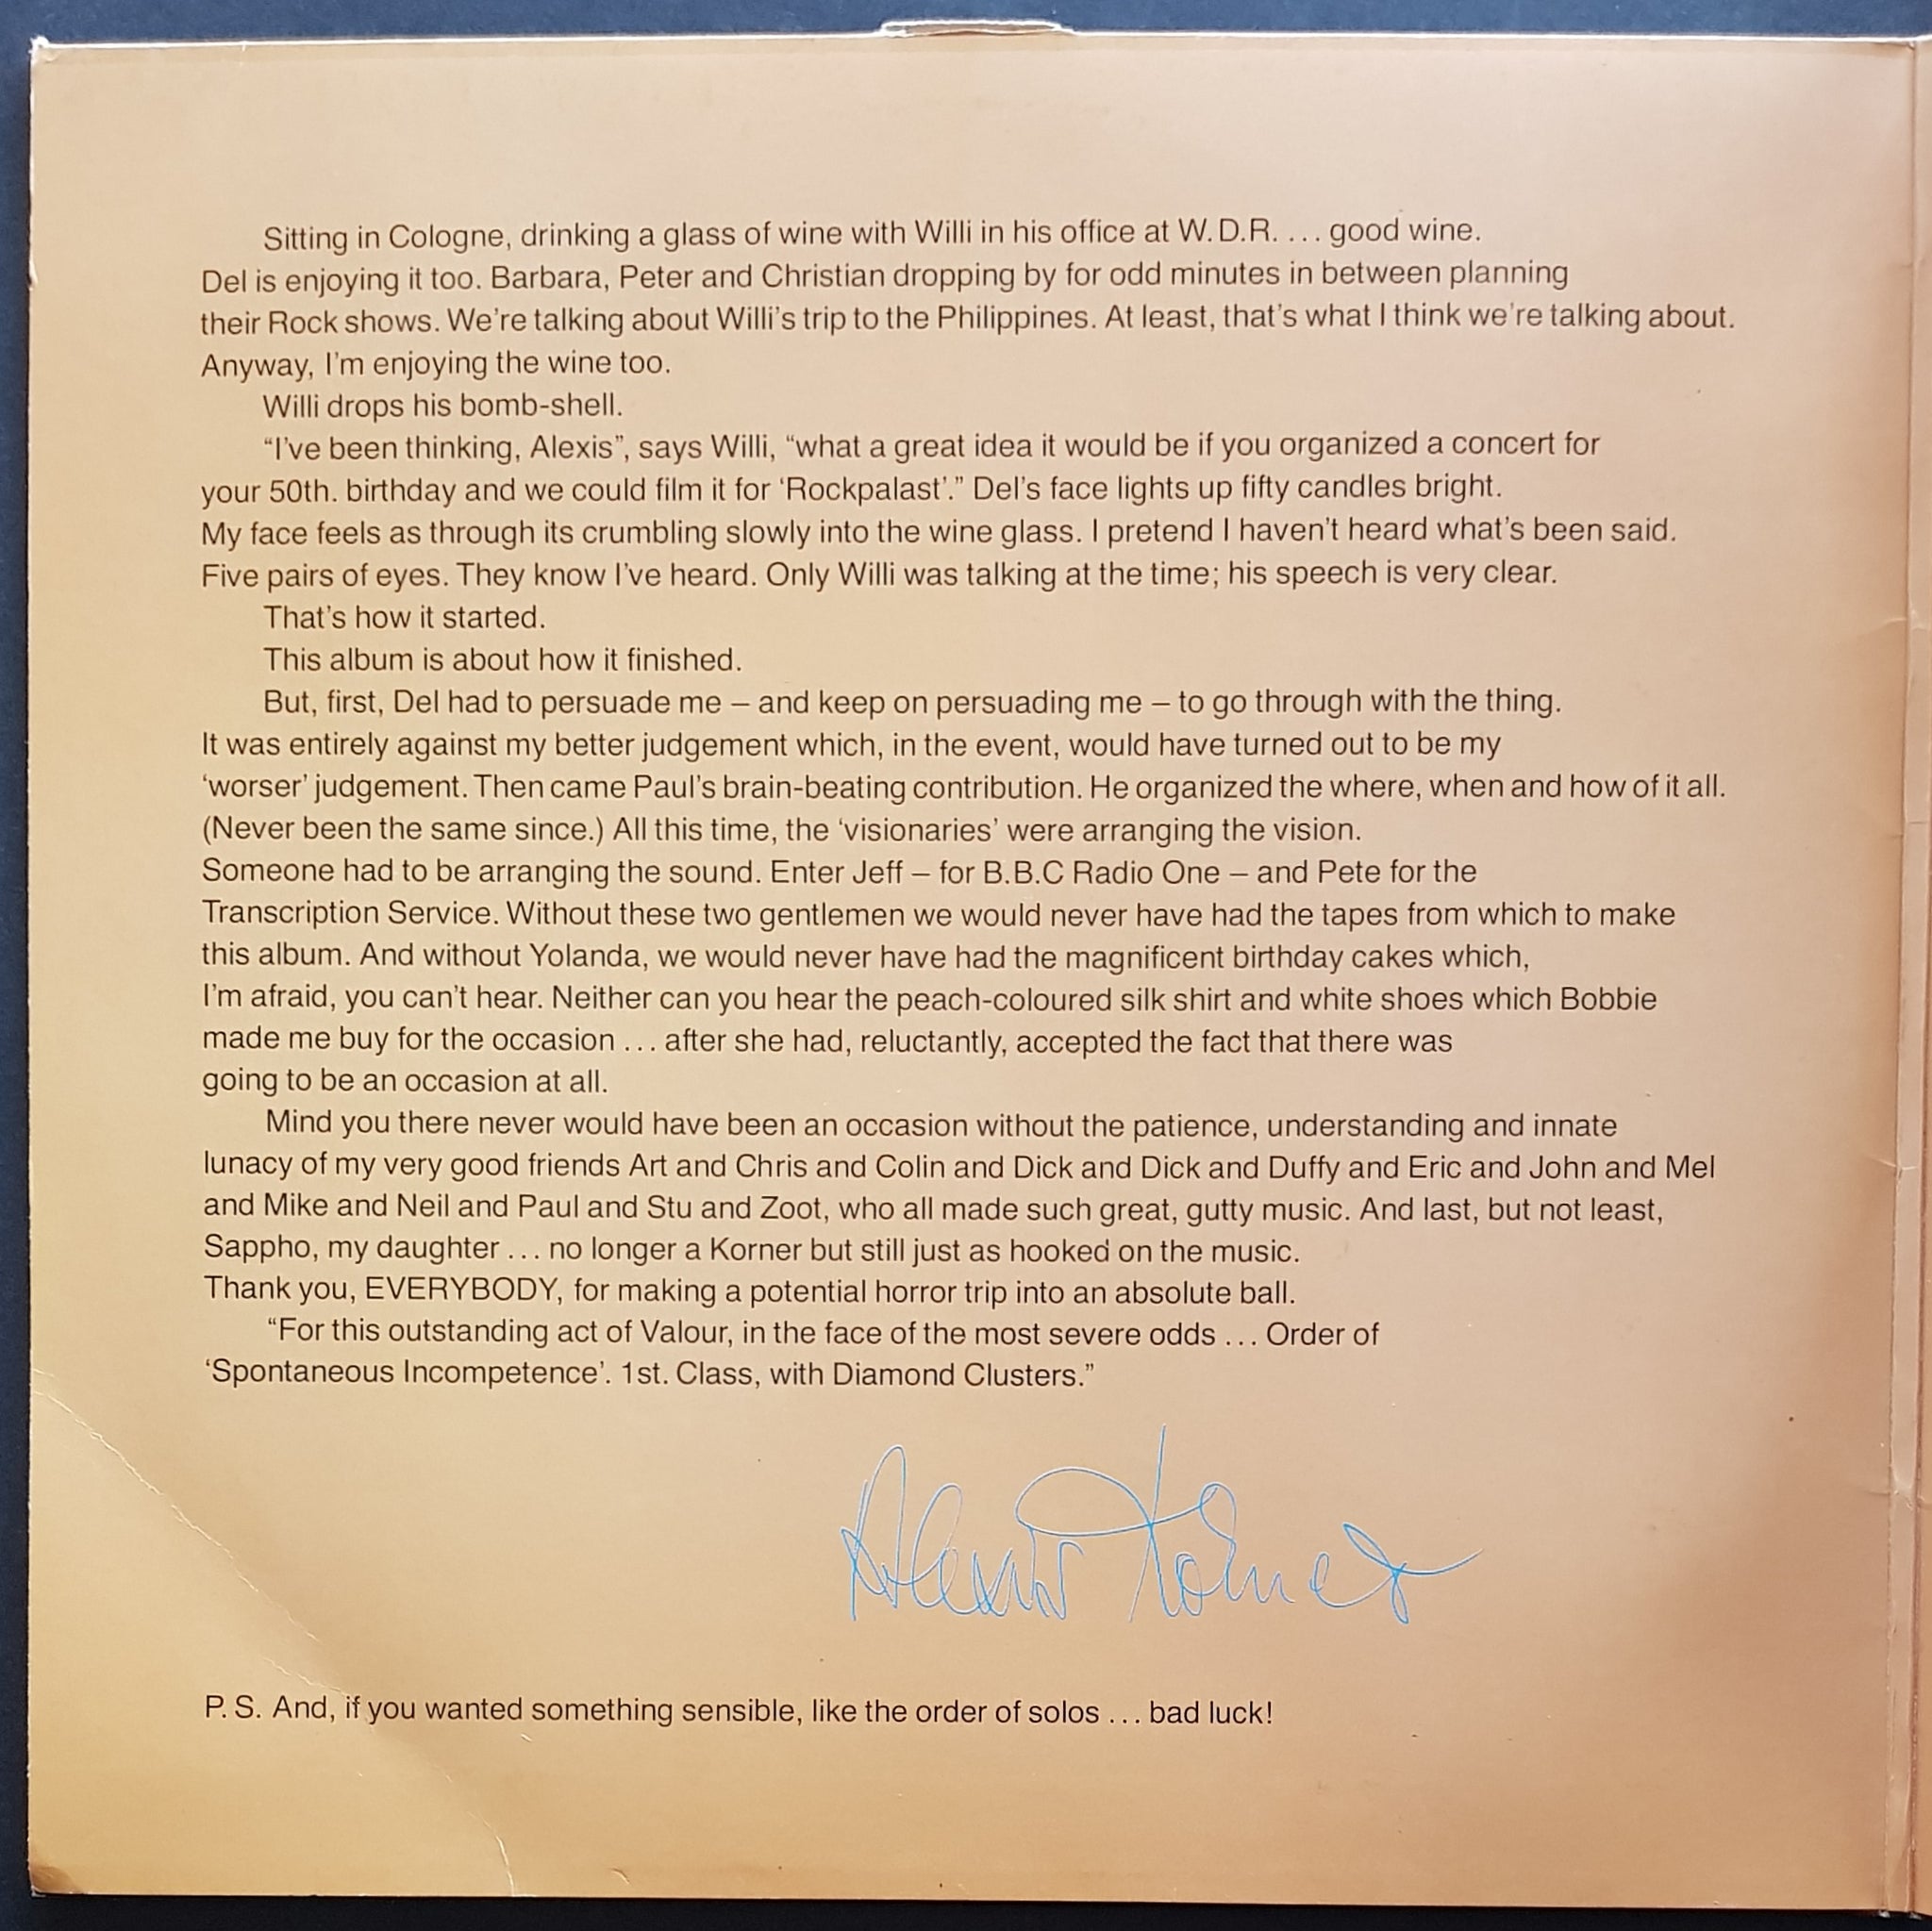 Sitting in Cologne, drinking a glass of wine with Willi in his office at W.D.R. ... good wine.
Del is enjoying it too. Barbara, Peter and Christian dropping by for odd minutes in between planning
their Rock shows. We're talking about Willi's trip to the Philippines. At least, that's what I think we're talking about.
Anyway, I'm enjoying the wine too.
Willi drops his bomb-shell.
“I've been thinking, Alexis”, says Willi, “what a great idea it would be if you organized a concert for
your 50th. birthday and we could film it for ‘Rockpalast’.” Del's face lights up fifty candles bright.
My face feels as through its crumbling slowly into the wine glass. I pretend I haven't heard what's been said.
Five pairs of eyes. They know I've heard. Only Willi was talking at the time; his speech is very clear.
That's how it started.
This album is about how it finished.
But, first, Del had to persuade me – and keep on persuading me – to go through with the thing.
It was entirely against my better judgement which, in the event, would have turned out to be my
‘worser’ judgement. Then came Paul's brain-beating contribution. He organized the where, when and how of it all.
(Never been the same since.) All this time, the ‘visionaries’ were arranging the vision.
Someone had to be arranging the sound. Enter Jeff – for B.B.C Radio One – and Pete for the
Transcription Service. Without these two gentlemen we would never have had the tapes from which to make
this album. And without Yolanda, we would never have had the magnificent birthday cakes which,
I'm afraid, you can't hear. Neither can you hear the peach-coloured silk shirt and white shoes which Bobbie
made me buy for the occasion ... after she had, reluctantly, accepted the fact that there was
going to be an occasion at all.
Mind you there never would have been an occasion without the patience, understanding and innate
lunacy of my very good friends Art and Chris and Colin and Dick and Dick and Duffy and Eric and John and Mel
and Mike and Neil and Paul and Stu and Zoot, who all made such great, gutty music. And last, but not least,
Sappho, my daughter ... no longer a Korner but still just as hooked on the music.
Thank you, EVERYBODY, for making a potential horror trip into an absolute ball.
“For this outstanding act of Valour, in the face of the most severe odds ... Order of
‘Spontaneous Incompetence’. 1st. Class, with Diamond Clusters.”
Alexis Korner
P. S. And, if you wanted something sensible, like the order of solos ... bad luck!